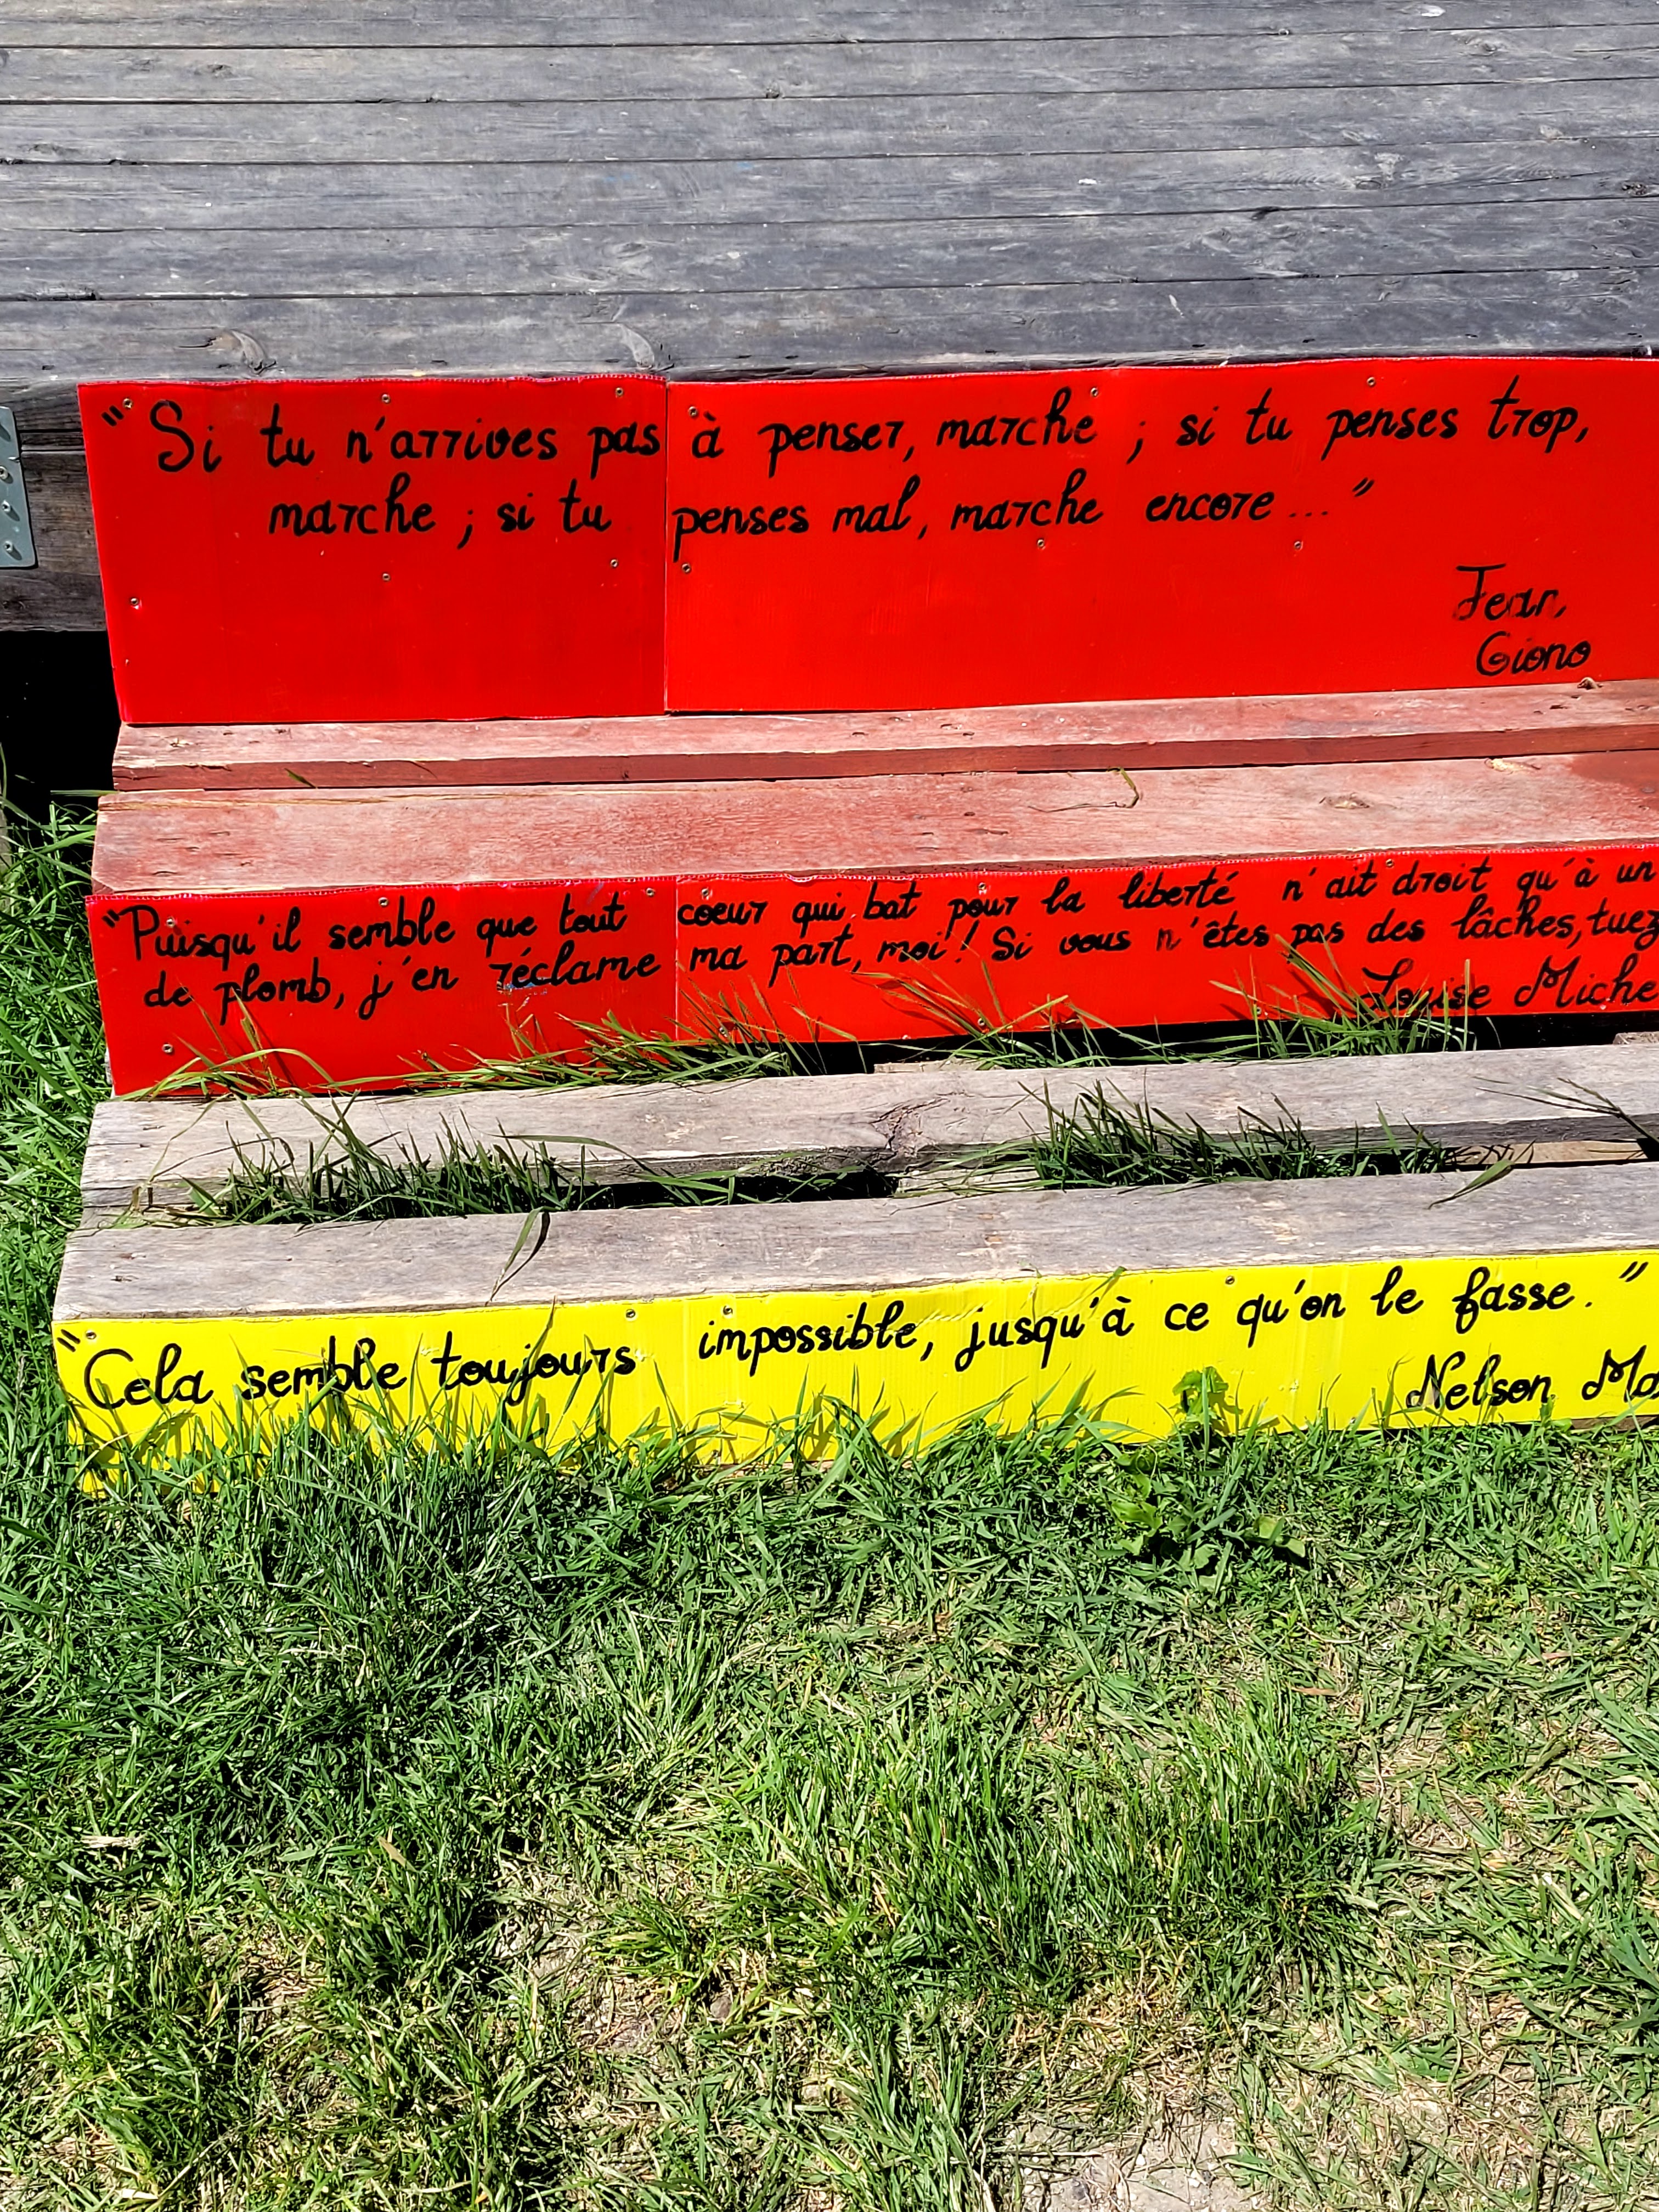 "Si tu n'arrives pas à penser, marche ; si tu penses trop,
marche ; si tu penses mal, marche encore ... "
Jean
Giono
"Puisqu'il semble que tout coeur qui bat pour la liberté n'ait droit qu'à un
de plomb, j'en réclame ma part, moi ! Si vous n'êtes pas des lâches, tuez
Louise Miche
"Cela semble toujours impossible, jusqu'à ce qu'on le fasse. "
Nelson Ma